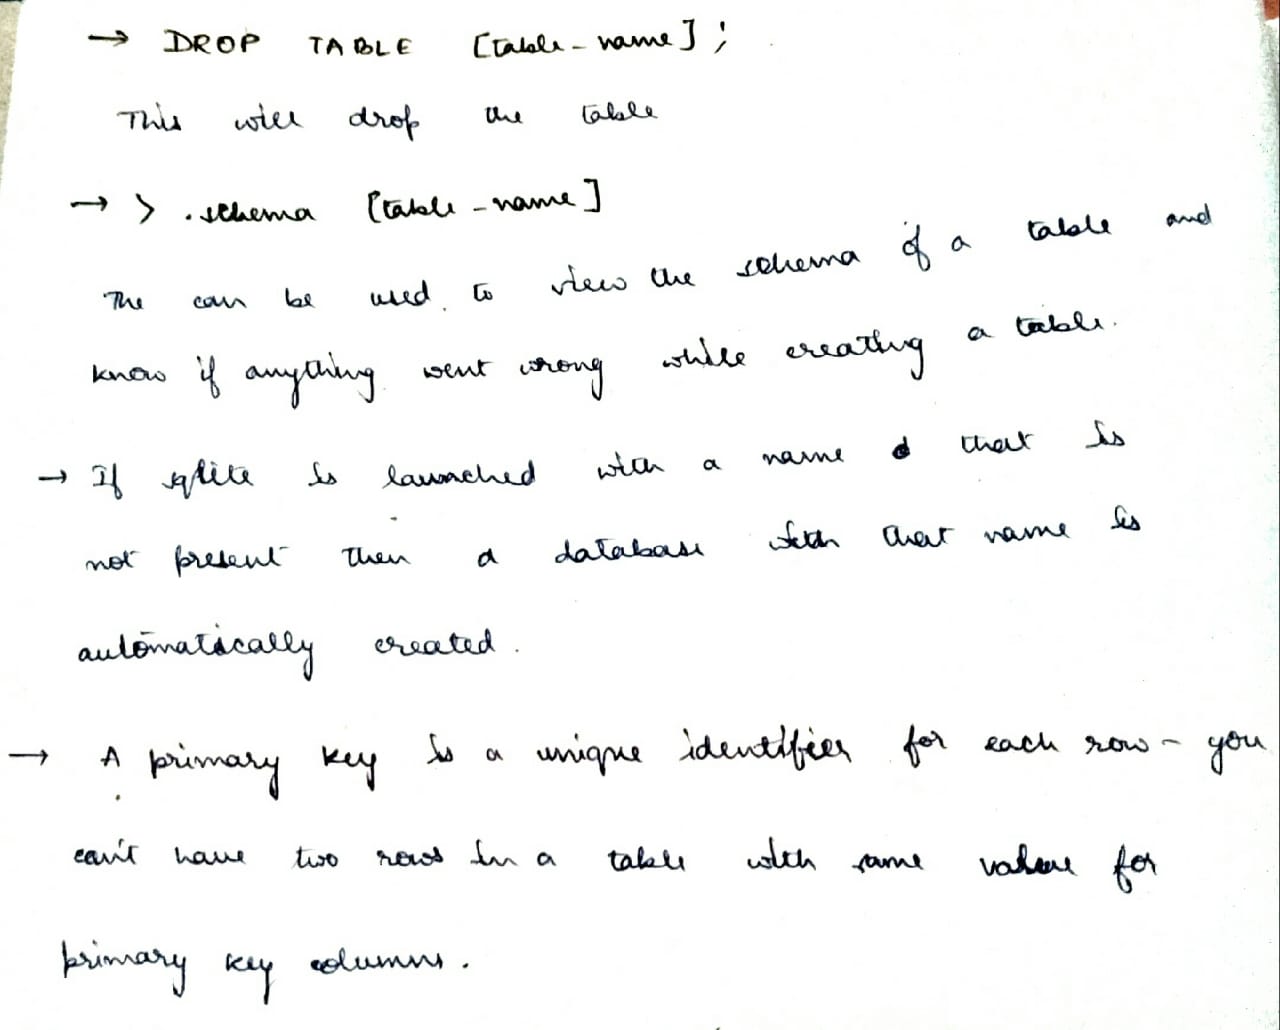 → DROP TABLE [table-name];
This will drop the table
→ > .schema [table-name]
The can be used to view the schema of a table and
know if anything went wrong while creating a table.
→ If sqlite is launched with a name that is
not present then a database with that name is
automatically created.
→ A primary key is a unique identifier for each row - you
can't have two rows in a table with same value for
primary key columns.